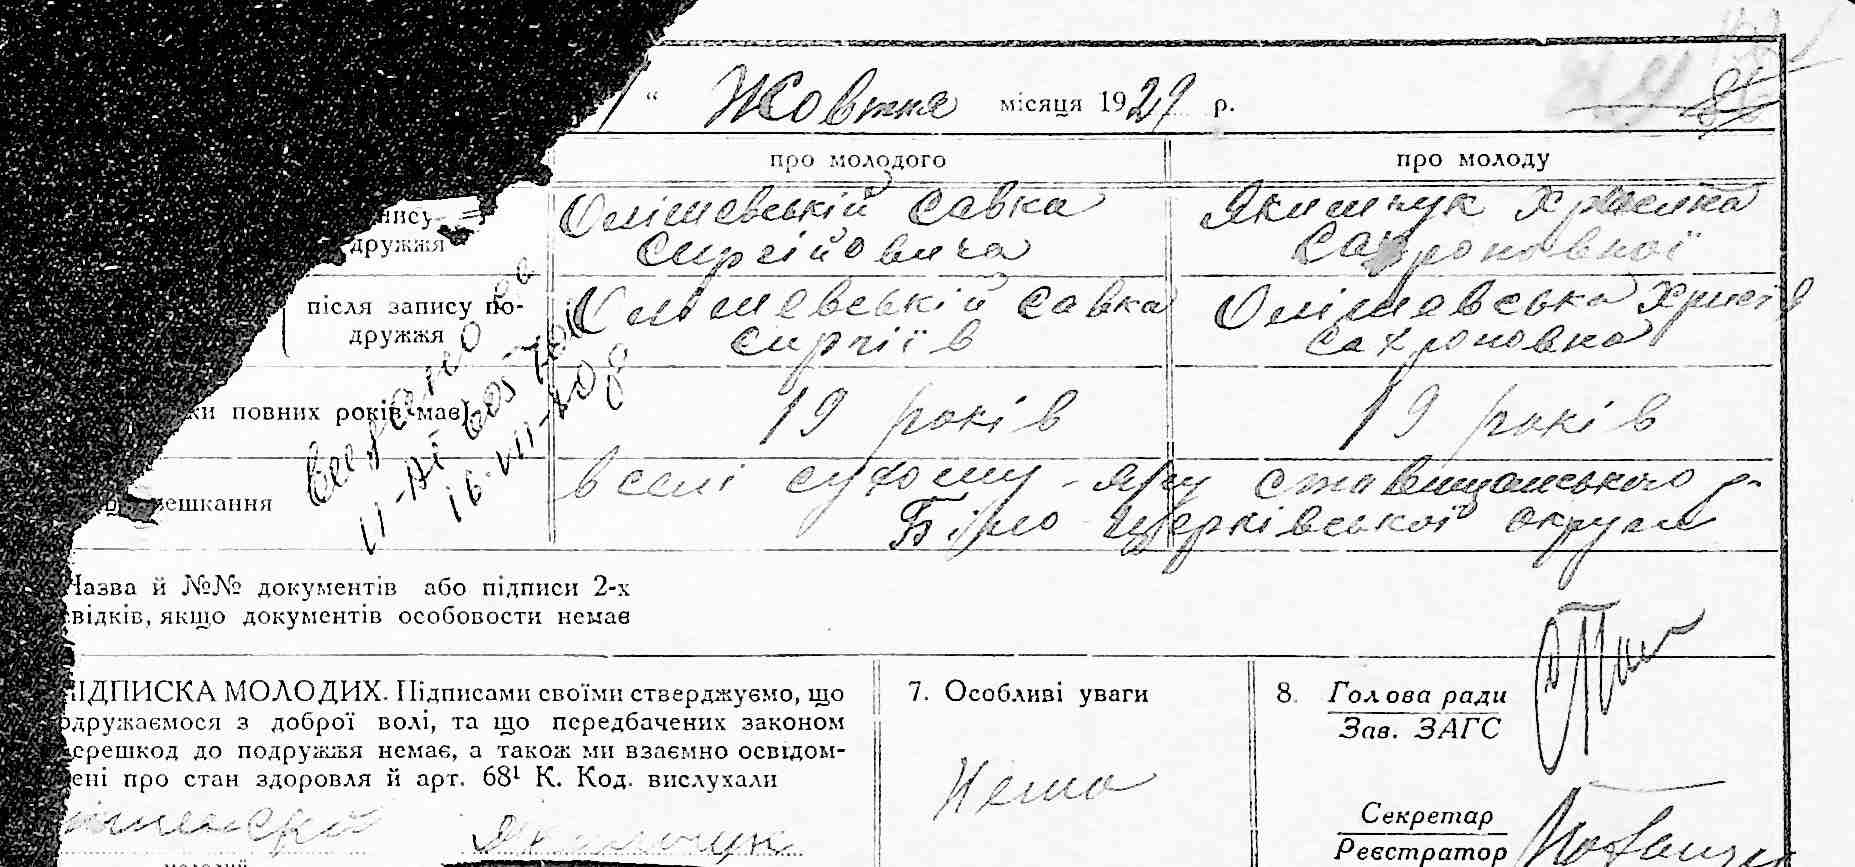 “ Жовтня місяця 1929 р.
про молодого про молоду
Олішевській Савка Якимчук
Сиргійовича
дружжя
після запису по-
дружжя
Олішевській Савка Олішевська Христя
Сиргіїв Сахроновна
повних років має
19 років 19 років
вселі сухому-яру ставищанського р-
Біло-Церківської округи
ешкання
11-АІ
Назва й №№ документів або підписи 2-х
свідків, якщо документів особовости немає
ПІДПИСКА МОЛОДИХ. Підписами своїми стверджуємо, що
одружаємося з доброї волі, та що передбачених законом
перешкод до подружжя немає, а також ми взаємно освідом-
лені про стан здоровля й арт. 68¹ К. Код. вислухали
Якимчук
молодий
7. Особливі уваги
Нема
8. Голова ради
Зав. ЗАГС
Секретар
Реєстратор